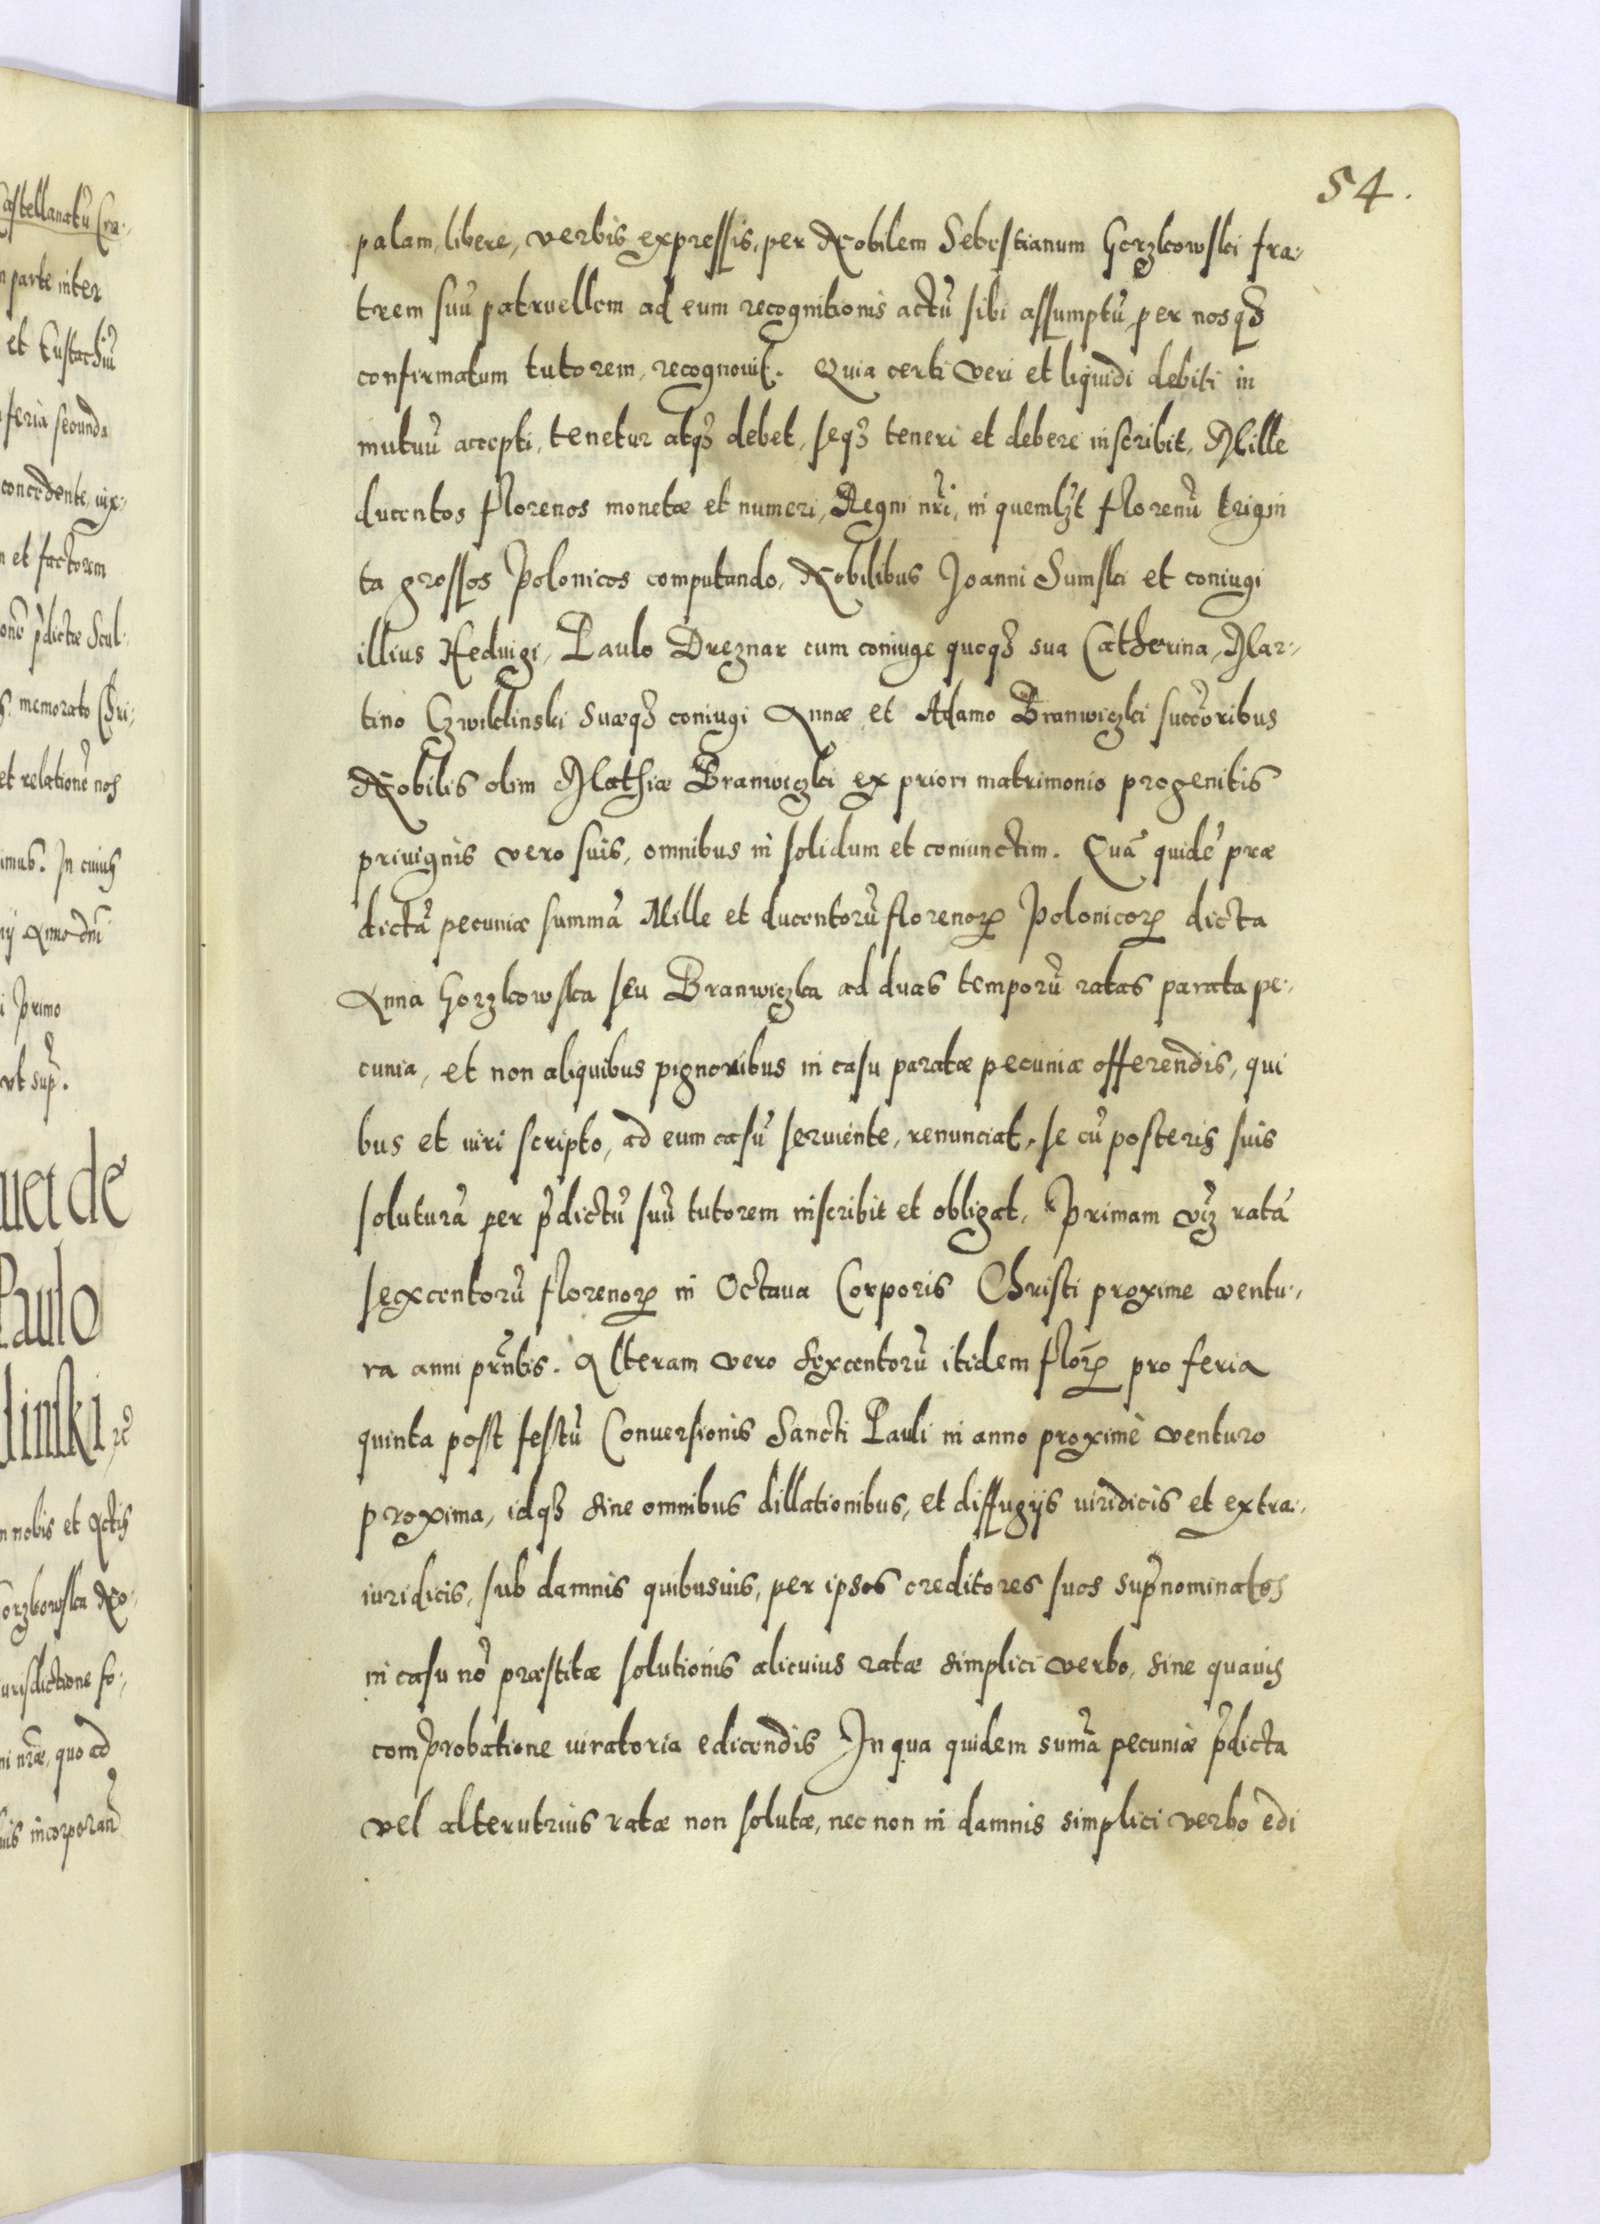 54.
palam, libere, verbis expressis, per Nobilem Sebestianum Gorzkowski fra-
trem suũ patruellem ad eum recognitionis actũ sibi assumptũ per nosq3
confirmatum tutorem, recognovit. Quia certi veri et liquidi debiti in
mutuũ accepti, tenetur atq3 debet, seq3 teneri et debere inscribit, Mille
ducentos florenos monetæ et numeri, Regni nr̃i, in quemlꝫt florenũ trigin
ta grossos Polonicos computando, Nobilibus Joanni Sumski et coniugi
illius Hedvigi, Paulo Dreznar cum coniuge quoq3 sua Catherina, Mar-
tino Czwiklinski suæq3 coniugi Annæ et Adamo Branwiczki succõribus
Nobilis olim Mathiæ Branwiczki ex priori matrimonio progenitis
privignis vero suis, omnibus in solidum et coniunctim. Quã quidẽ præ
dictã pecuniæ summã Mille et ducentorũ florenoꝝ Polonicoꝝ dicta
Anna Gorzkowska seu Branwiczka ad duas temporũ ratas parata pe-
cunia, et non aliquibus pignoribus in casu paratæ pecuniæ offerendis, qui
bus et iuri scripto, ad eum casũ serviente, renunciat, se cũ posteris suis
soluturã per p̃dictũ suũ tutorem inscribit et obligat, Primam vꝫ ratã
sexcentorũ florenoꝝ in Octava Corporis Christi proxime ventu-
ra anni pr̃ntis. Alteram vero sexcentorũ itidem flor̃ꝝ pro feria
quinta post festũ Conversionis Sancti Pauli in anno proximè venturo
proxima, idq3 sine omnibus dillationibus, et diffugijs iuridicis et extra-
iuridicis, sub damnis quibusvis, per ipsos creditores suos sup̃nominatos
in casu nõ præstitæ solutionis alicuius ratæ simplici verbo, sine quavis
comprobatione iuratoria edicendis In qua quidem sum̃a pecuniæ p̃dicta
vel alterutrius ratæ non solutæ, nec non in damnis simplici verbo edi